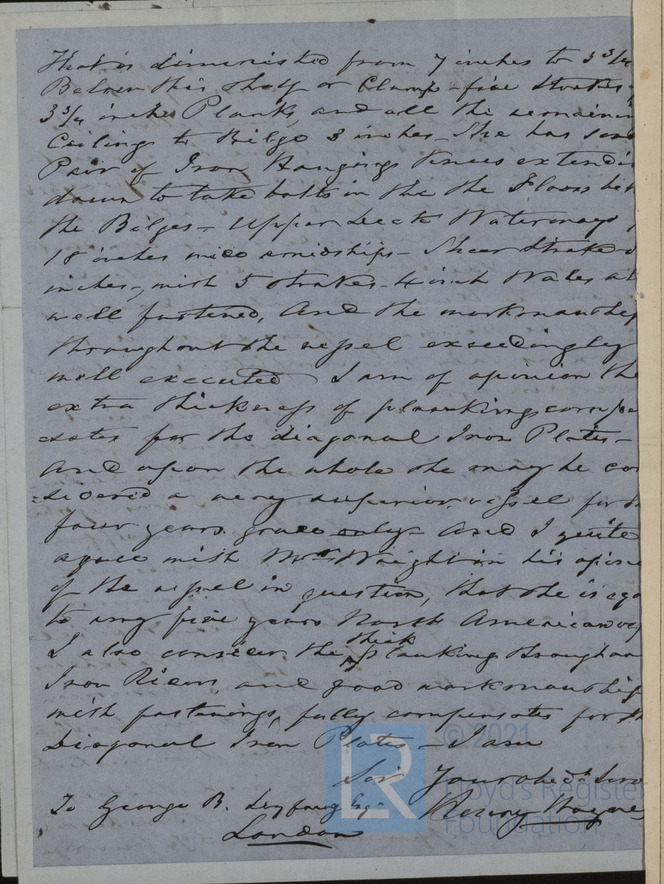 that is diminished from 7 inches to 3 3/4
Below this Shelf or Clamp five Strakes
3 3/4 inches Plank, and all the remainin
Ceilings to Bilge 3 inches. She has
Pair of Iron Hanging Knees extendi
down to take bolts in the the Floors
the Bilges - Upper Deck Waterways
18 inches amidships - Sheer Strake
inches, with 5 Strakes 4 inch Wales
well fastened, And the workmanship
throughout the vessel exceedingly
well executed I am of opinion the
extra thickness of planking compe
sates for the diagonal Iron Plates -
And upon the whole she may be con
=sidered a very superior vessel for
four years grace only - And I quite
agree with Mr Wright in his opin
of the vessel in question, that she is eq
to any five years North American
I also consider the thick planking througho
Iron and good workmanship
with fastenings, fully compensates for
Diagonal Iron Plates - I am
Sir Your obedt Serv
To George B. Seyfang Esqr
London
© 2021
LR
Lloyd's Register
Foundation